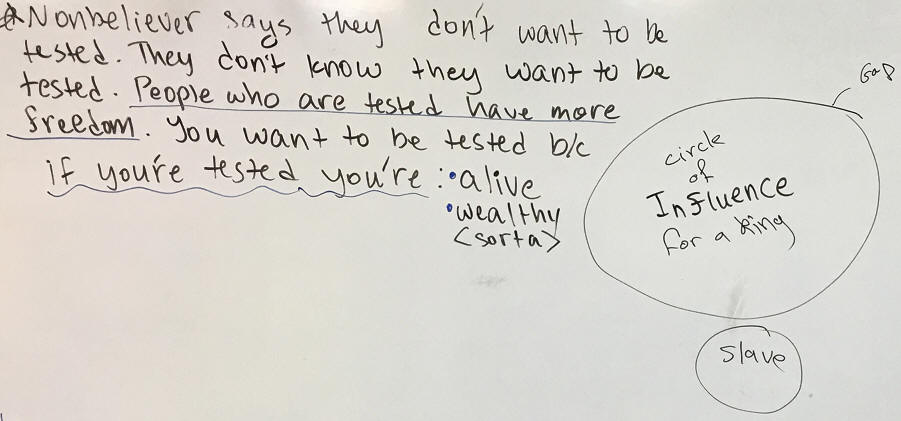 *Nonbeliever says they don't want to be
tested. They don't know they want to be
tested. People who are tested have more
freedom. You want to be tested b/c
if you're tested you're: •alive
•wealthy
<sorta>
God
circle
of
Influence
for a king
Slave